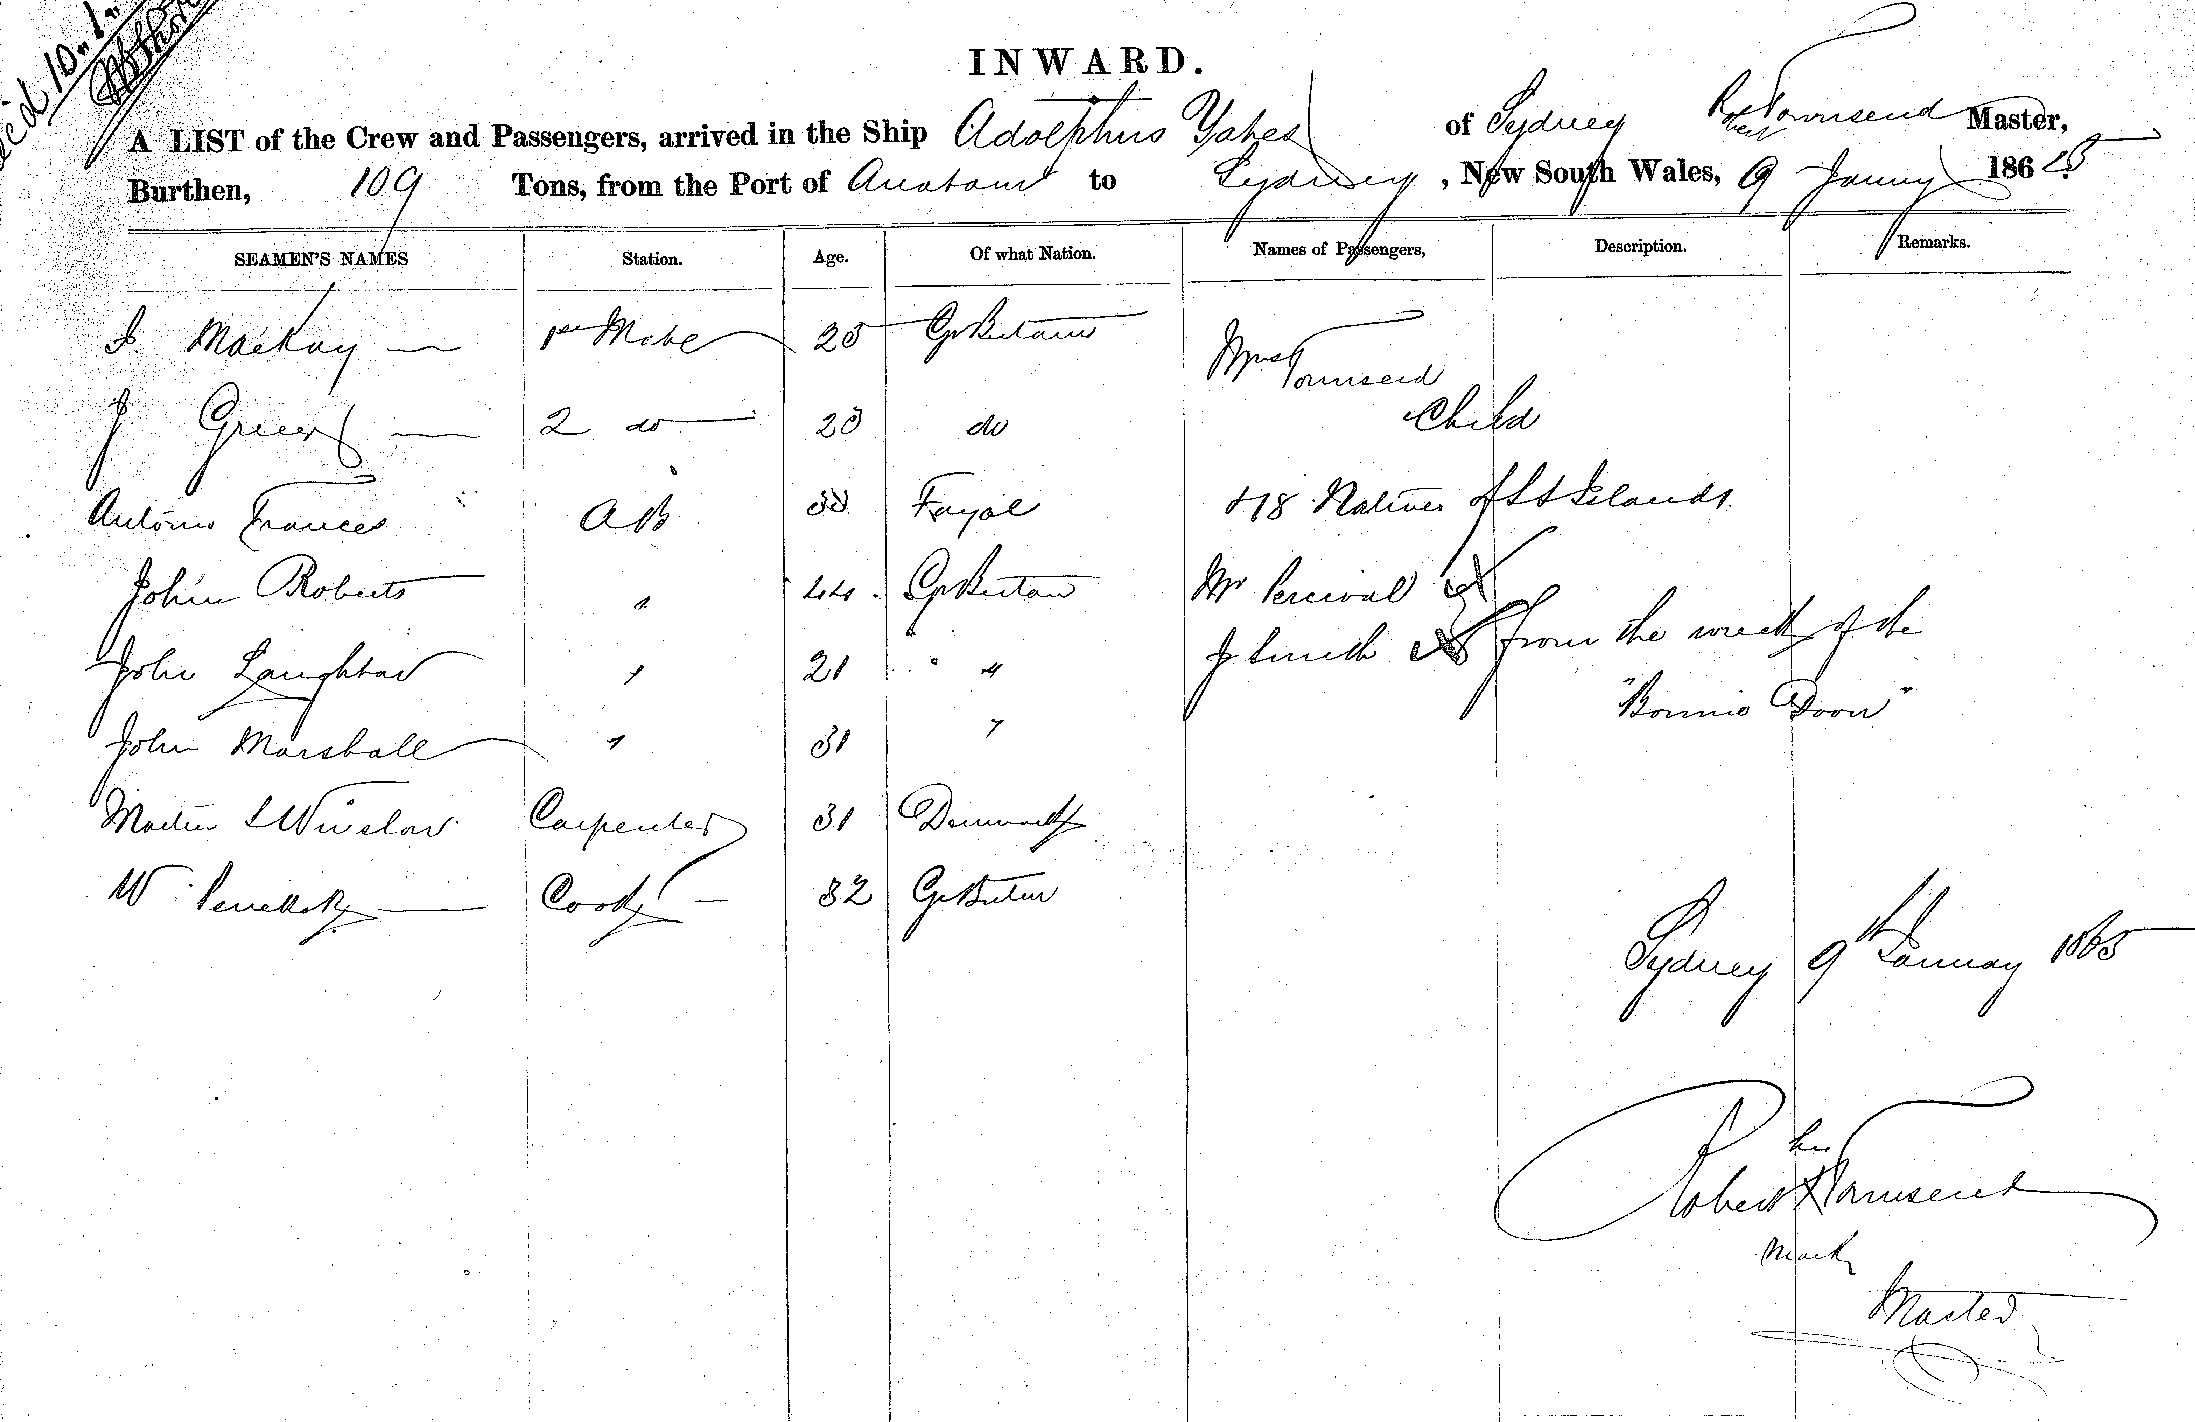 INWARD.
A LIST of the Crew and Passengers, arrived in the Ship Adolphus Yates of Sydney Robert Townsend Master,
Burthen, 109 Tons, from the Port of Anatam to Sydney, New South Wales, 9 Janny 1865
SEAMEN'S NAMES Station. Age. Of what Nation. Names of Passengers, Description. Remarks.
J. Mackay 1st Mate 25 Gt Britain Mrs Townsend
J Green 2 do 23 do Child
Antonio Frances AB 33 Fayal 18 Natives of S S Islands
John Roberts " 44 Gt Britain Mr Percival
John Laughton " 21 " " J Smith from the wreck of the
"Bonnie Doon"
John Marshall " 31 "
Martin Winslow Carpenter 31 Denmark
W. Cook 32 Gt Britain
Sydney 9th January 1865
his
Robert X Townsend
mark
Master